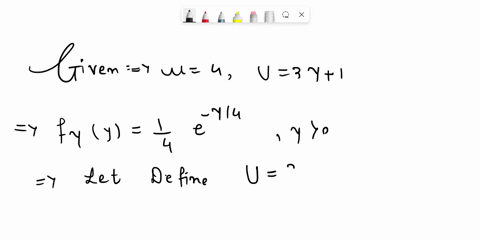 Given => μ = 4, U = 3Y+1
=> fY(y) = 1/4 e^-y/4 , y>0
=> Let Define U =